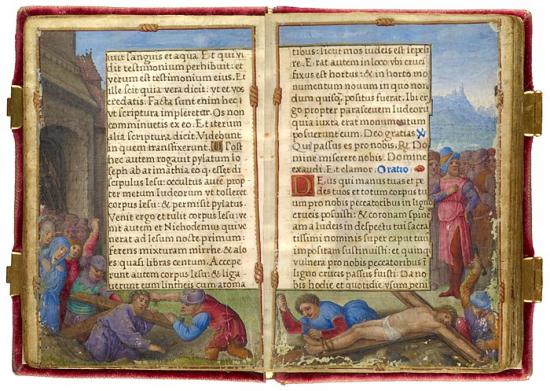 uit sanguis et aqua. Et qui vi
dit testimonium perhibuit: et
verum est testimonium eius. Et
ille scit quia vera dicit: ut et vos
credatis. Facta sunt enim hec
ut scriptura impleretur. Os non
comminuetis ex eo. Et iterum
alia scriptura dicit. Videbunt
in quem transfixerunt. Post
hec autem rogavit pylatum Io
seph ab arimathia eo q. esset di
scipulus Iesu: occultus autem prop
ter metum Iudeorum ut tolleret
corpus Iesu: & permisit pylatus
Venit ergo et tulit corpus Iesu: ve
nit autem et Nichodemus qui ve
nerat ad Iesum nocte primum:
ferens mixturam mirrhe & alo
es quasi libras centum. Accepe
runt autem corpus Iesu: & liga
verunt eum lintheis cum aroma
tibus: sicut mos iudeis est sepeli
re. Erat autem in loco ubi cruci
fixus est hortus: & in horto mo
numentum novum in quo no
dum quisq. positus fuerat. Ibi er
go propter parasceven Iudeorum
quia iuxta erat monumentum
posuerunt eum. Deo gratias
Qui passus es pro nobis. Do
mine miserere nobis. Domine
exaudi. Et clamor. Oratio
Deus qui manus tuas et pe
des tuos et totum corpus tu
um pro nobis peccatoribus in ligno
crucis posuisti: & coronam spine
am a Iudeis in despectu tui sacra
tissimi nominis super caput tuum
impositam sustinuisti: et quinque
vulnera pro nobis peccatoribus in
ligno crucis passus fuisti: Da no
bis hodie et quotidie usum peni